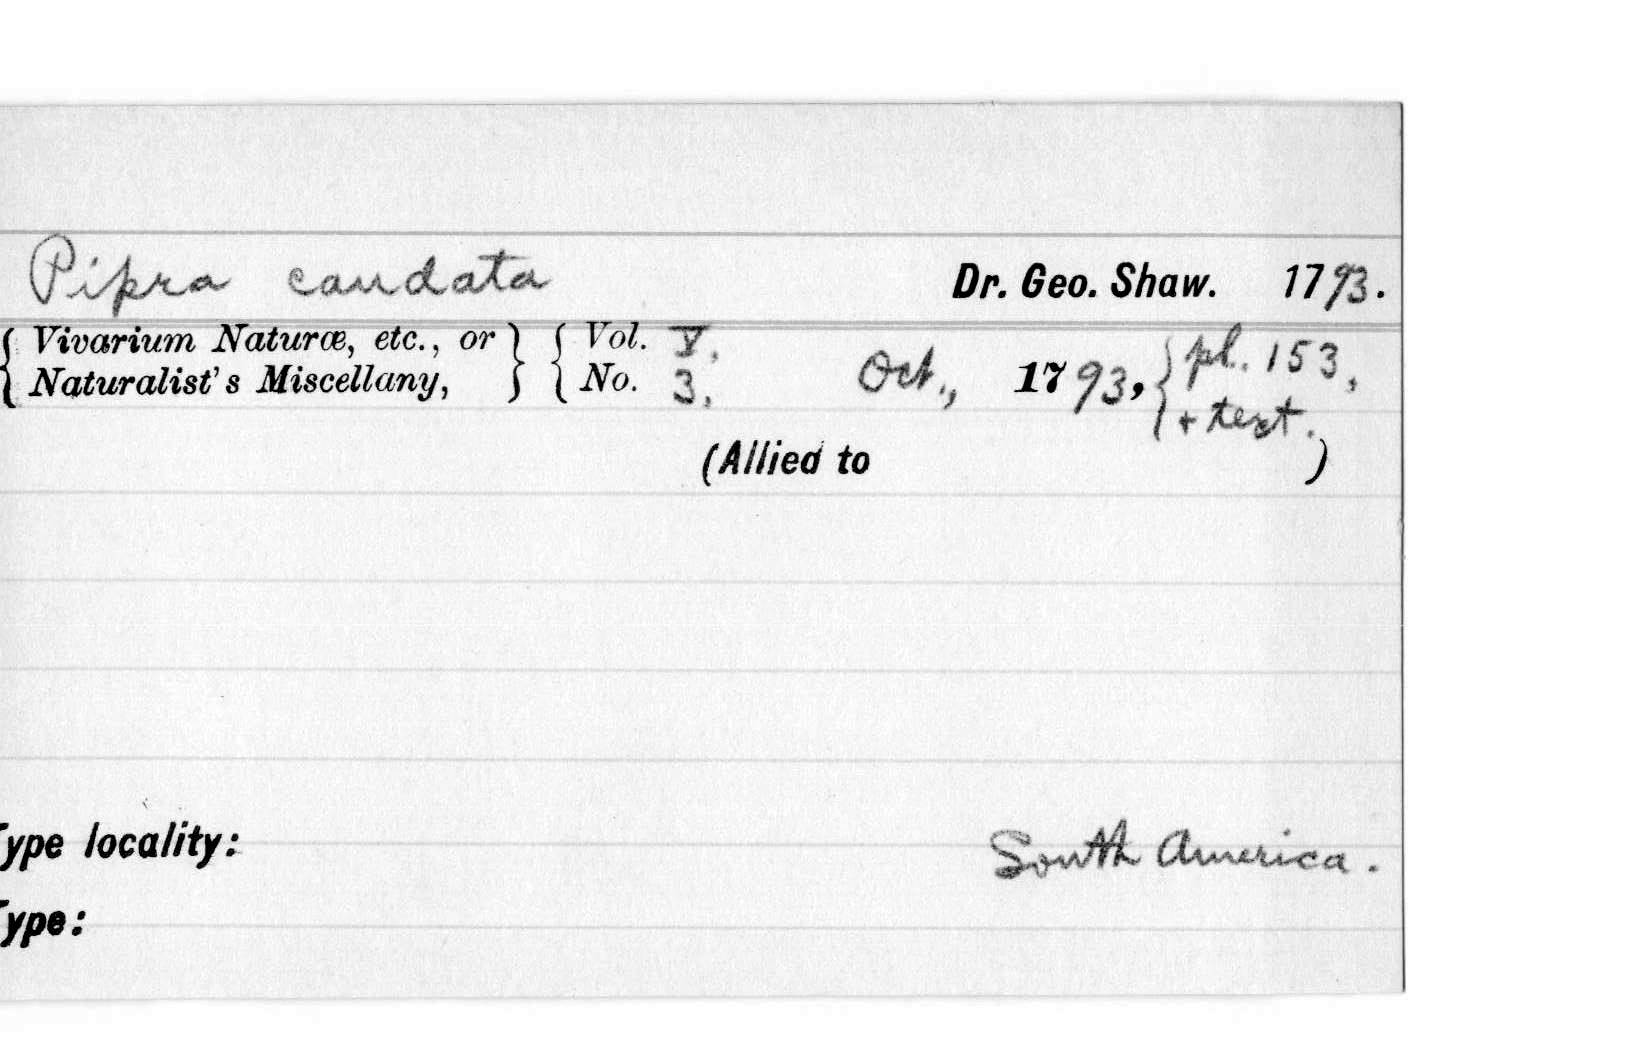 Pipra caudata Dr. Geo. Shaw. 1793.
{ Vivarium Naturæ, etc., or } { Vol. V. pl. 153,
{ Naturalist's Miscellany, } { No. 3. Oct., 1793, { + text.
(Allied to )
Type locality: South America.
Type: